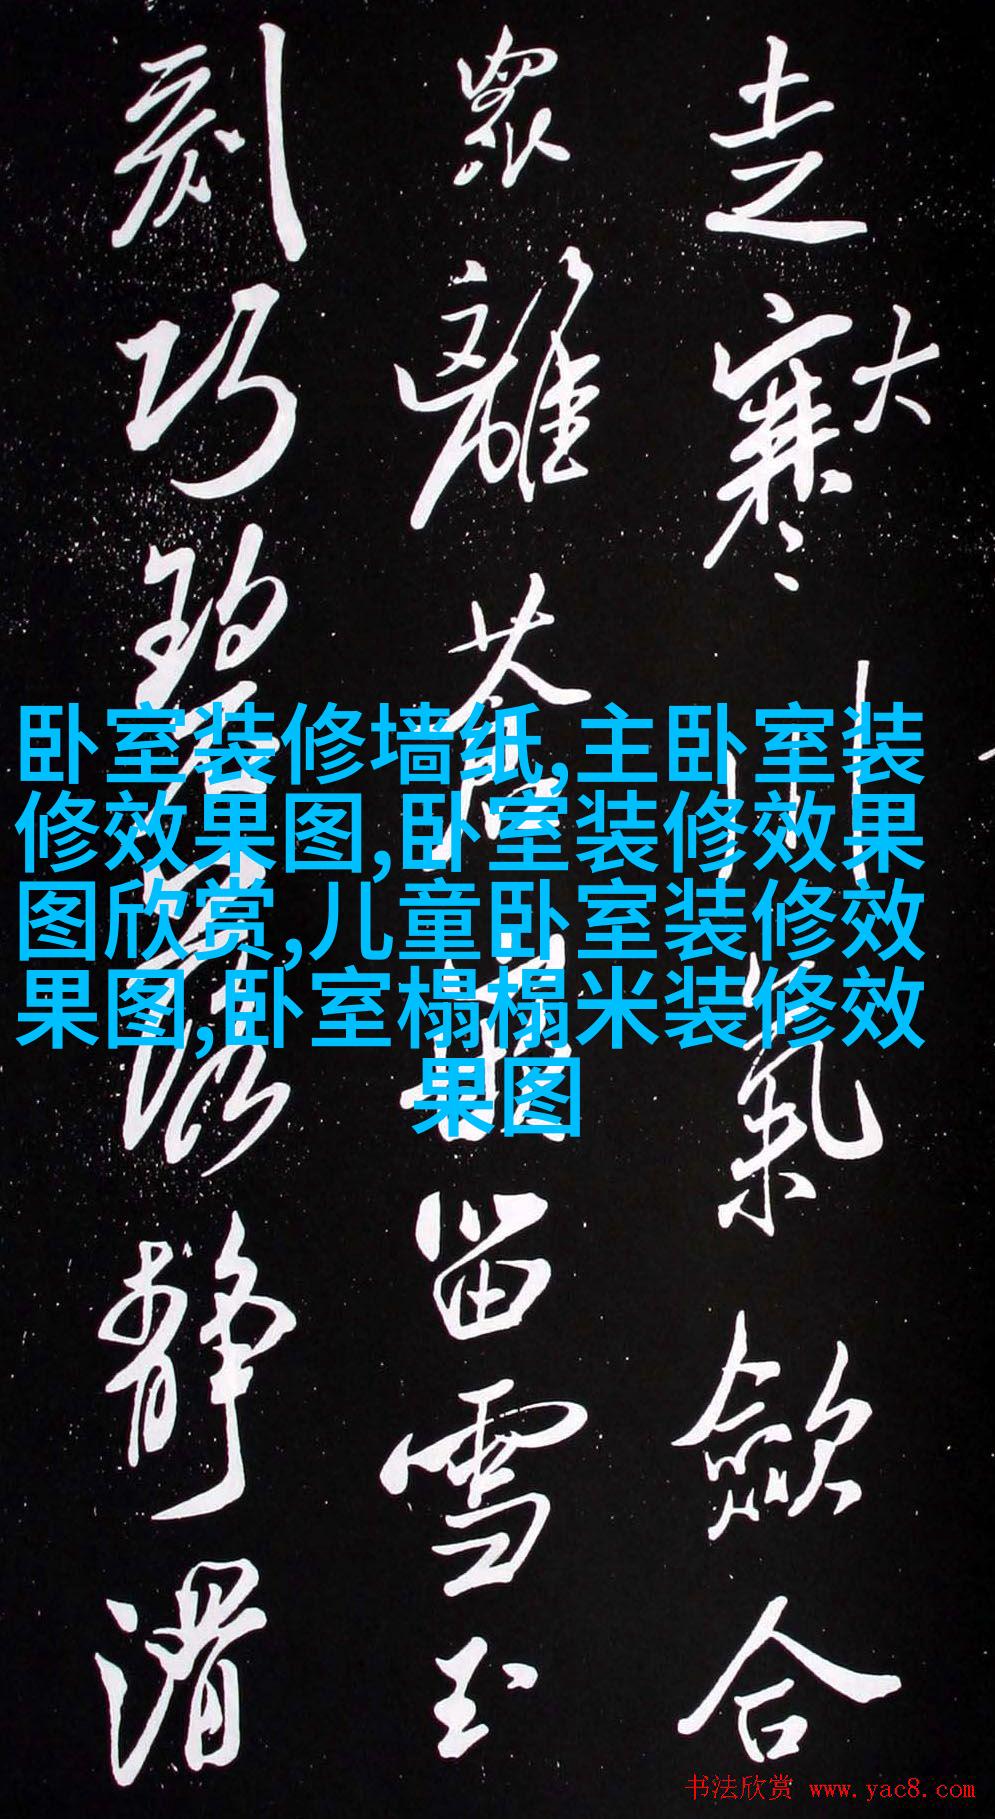 走寒大川氣歛合
眾離
留雪玉
刻巧
静滑
卧室装修墙纸,主卧室装
修效果图,卧室装修效果
图欣赏,儿童卧室装修效
果图,卧室榻榻米装修效
果图
书法欣赏 www.yac8.com